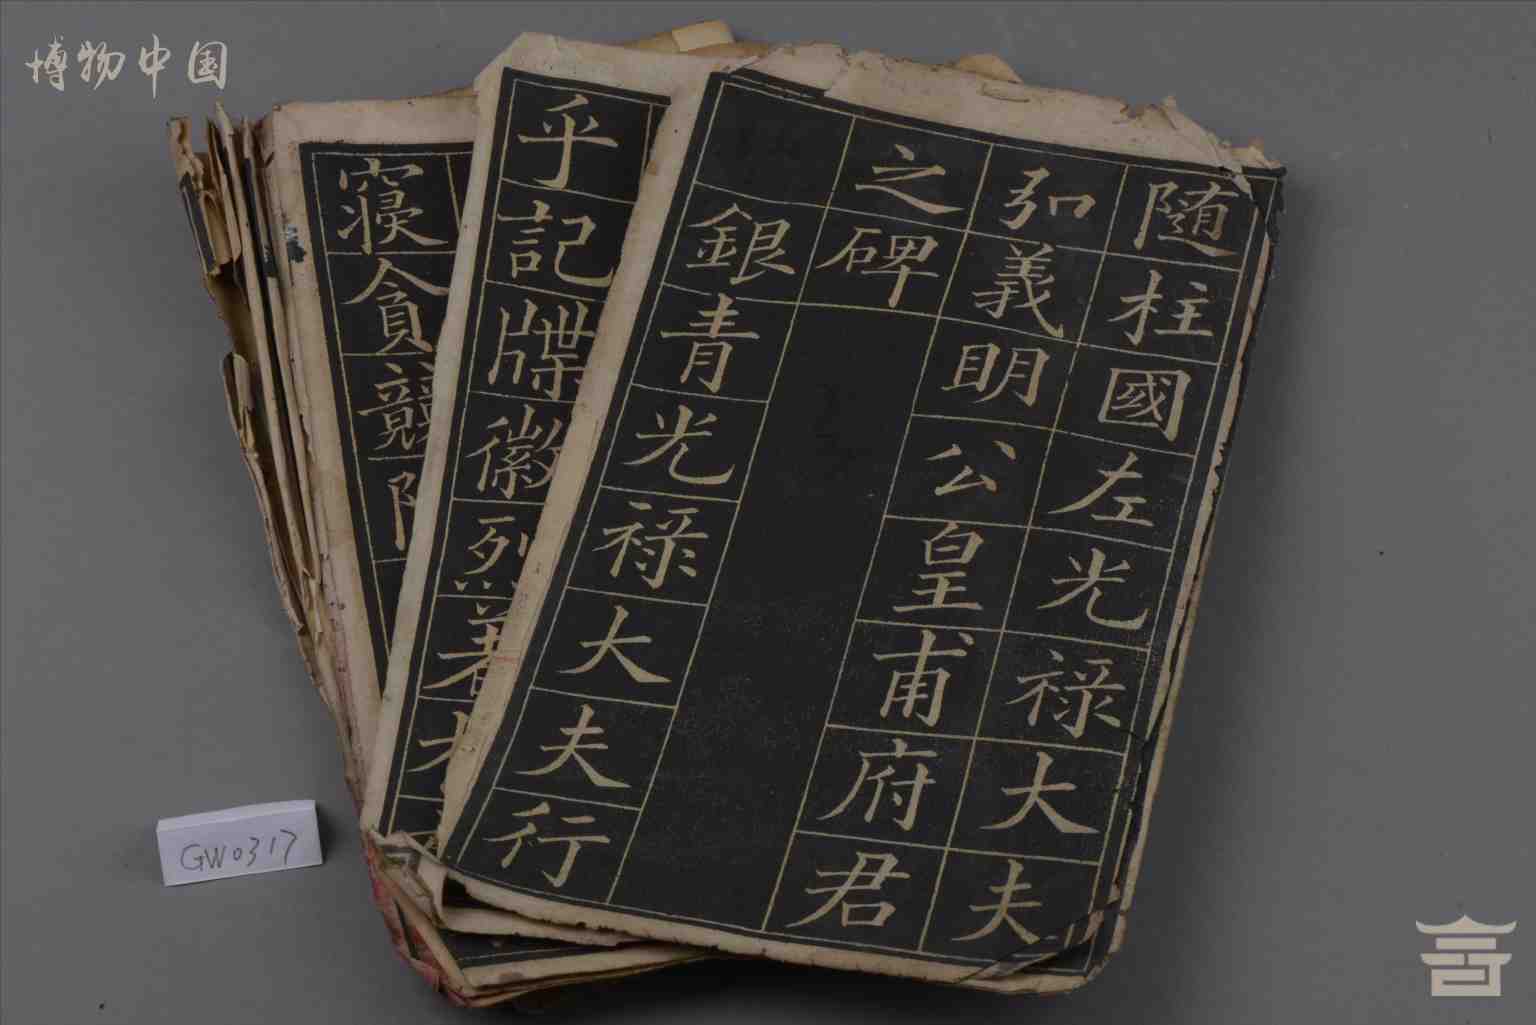 博物中国
随柱國左光祿大夫
弘義明公皇甫府君
之碑
銀青光祿大夫行
乎記牒徽烈著
寝貪競
GW0317